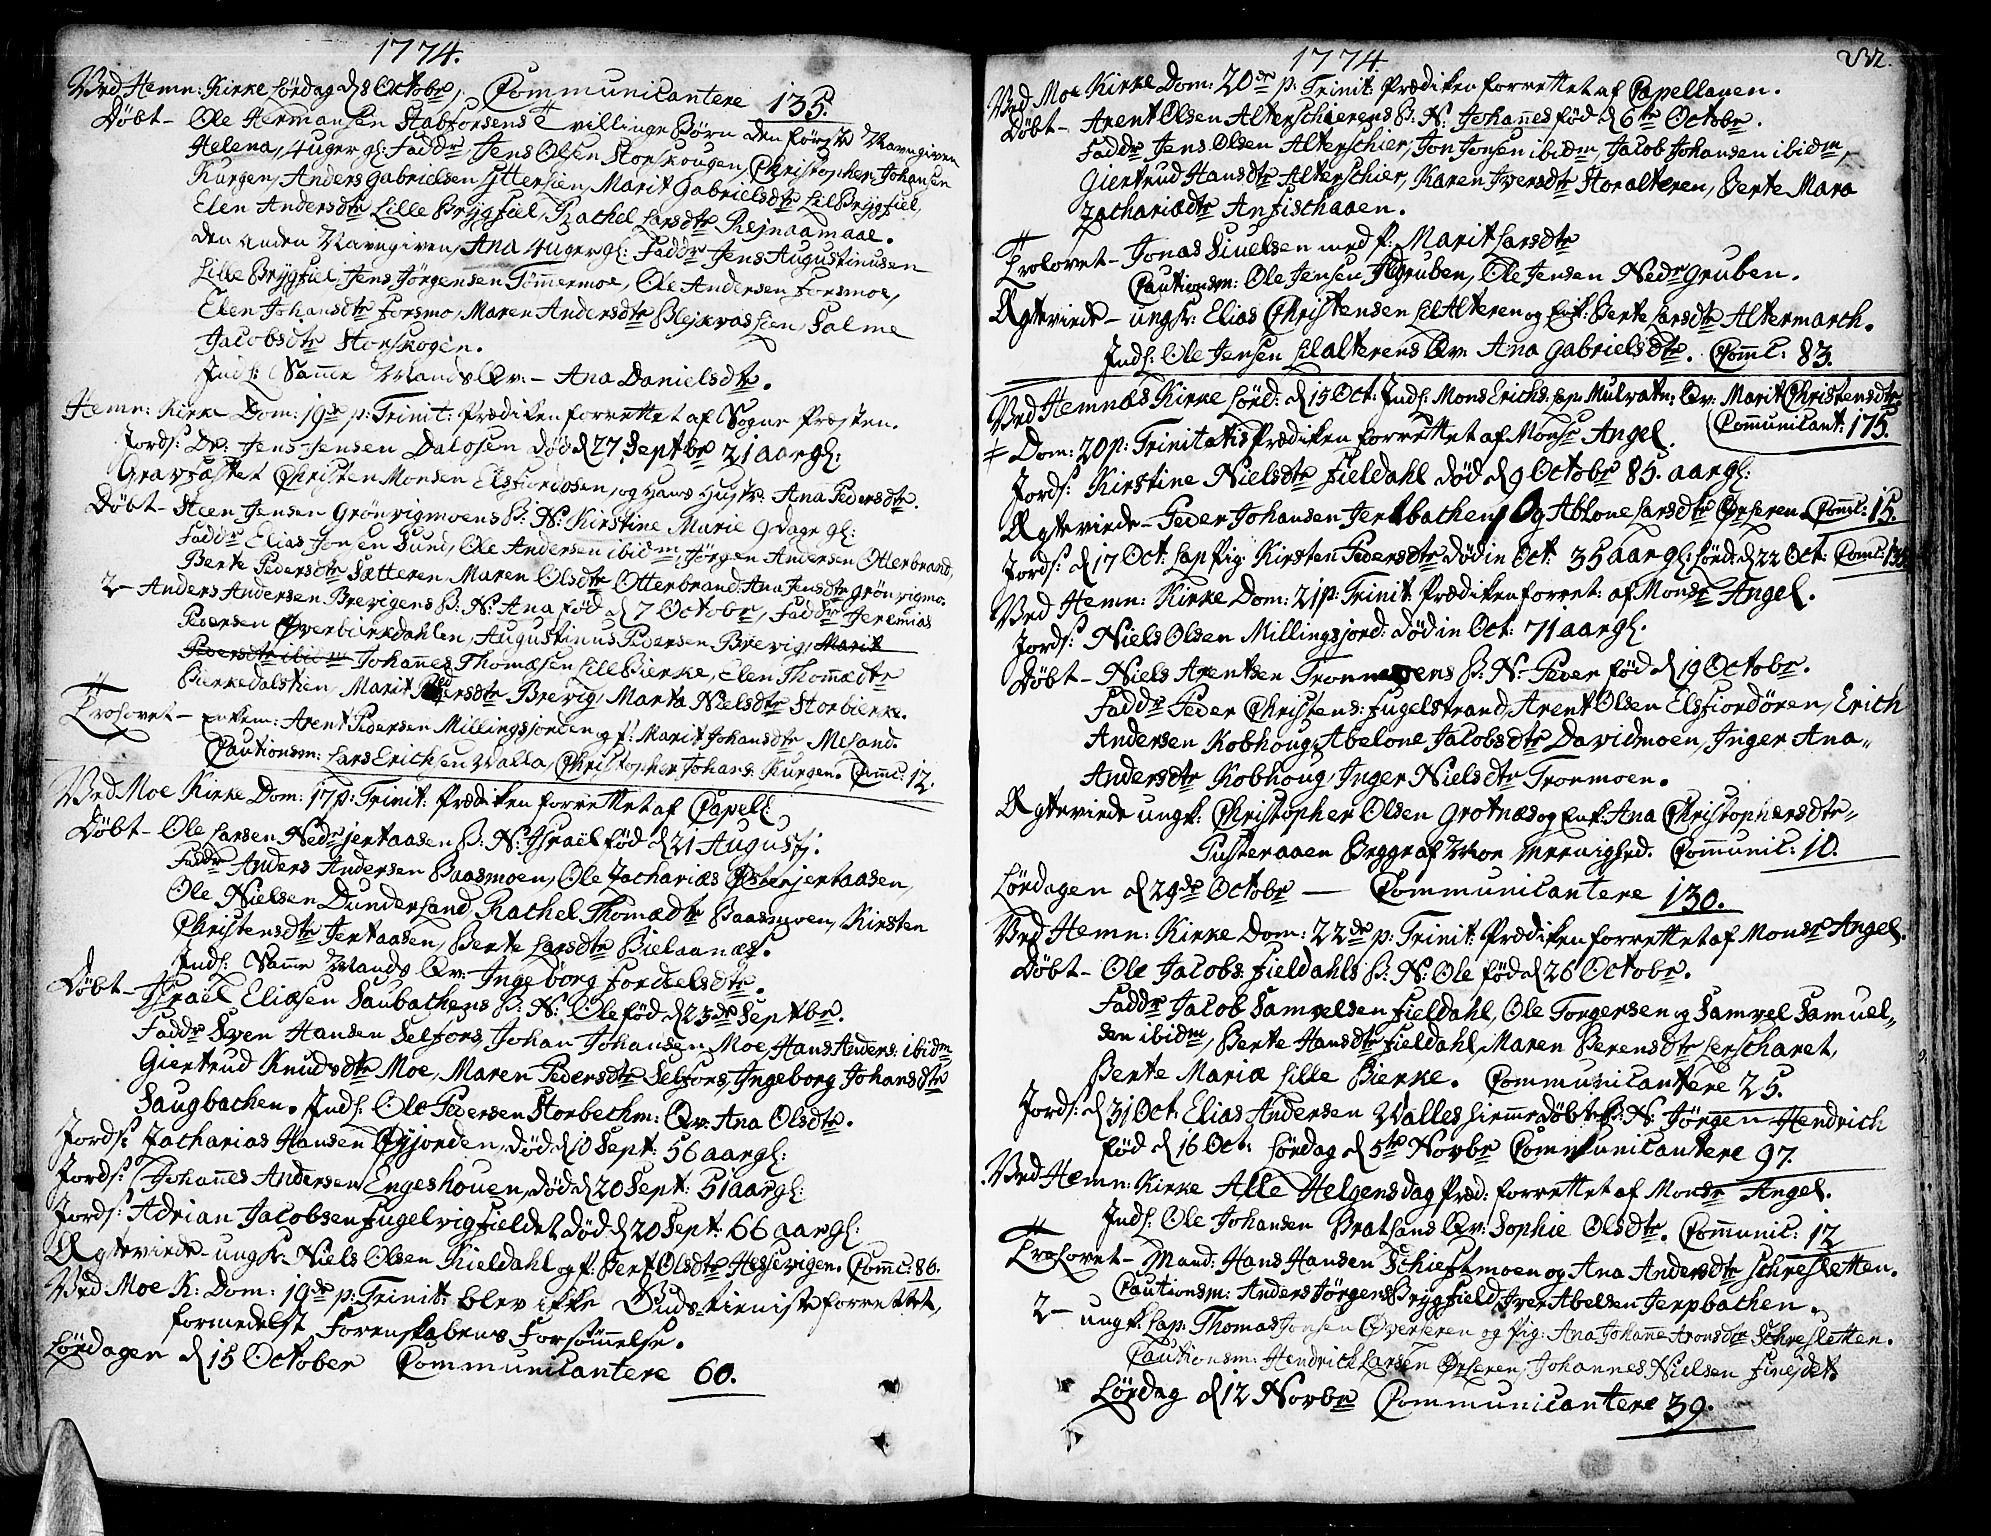 1774.
Ved Hemn: Kirke Lördag d 8 Octobr, Communicantere 135.
Döbt - Ole Hermansen Stabforsens Tvillinge Börn den förste Navngiven
Helena, 4 uger gl: Faddr Jens Olsen Storskougen, Christopher Johansen
Kurgen, Anders Gabrielsen Yttersien, Marit Gabrielsdtr Lil Brygfiel,
Elen Andersdtr Lille Brygfiel, Rachel Larsdtr Rejnaamaae.
den anden Navngiven, Ana 4 uger gl: Faddr Jens Augustinusen
Lille Brygfiel, Jens Jörgensen Tömmermoe, Ole Andersen Forsmoe,
Elen Johansdtr Forsmo, Maren Andersdtr Blejkvaslien, Salme
Jacobsdtr Storskogen.
Indl: Samme Mands Qv: - Ana Danielsdtr.
Hemn: Kirke Dom: 19de p: Trinit: Prædiken forrettet af Sogne Præsten.
Jords: Dr: Jens Jensen Dalosen död d 27 Septbr 21 aar gl:
Gravfæstet Christen Monsen Elsfiordosen, og Hans Hustr: Ana Pedersdtr.
Döbt - Steen Jensen Grönvigmoens B: N: Kirstine Marie 9 dage gl:
Faddr Elias Jonsen Sund, Ole Andersen ibidm, Jörgen Andersen Otterbrand,
Berte Pedersdtr Sætteren, Maren Olsdtr Otterbrand, Ana Jensdtr Grönvigmo.
2 - Anders Andersen Brevigens B: N: Ana föd d 7 Octobr, Faddr Jeremias
Pedersen Överbierkdahlen, Augustinus Pedersen Brevig, Marit
Pedersdtr ibidm Johannes Thomæsen Lille Bierke, Elen Thomædtr
Bierkedalstien, Marit Pedersdtr Brevig, Marta Nielsdtr Storbierke.
Trolovet - Enkem: Arent Pedersen Millingsjorden og f: Marit Johansdtr Mesand.
Cautionsm: Lars Erichsen Valla, Christopher Johans: Kurgen. Comc: 12.
Ved Moe Kirke Dom: 17 p: Trinit: Prædiken forrettet af Capel:
Döbt - Ole Larsen Nedrjertaasen B: N: Israël föd d 21 Augusti.
Faddr Anders Andersen Baasmoen, Ole Zacharias Österjertaasen,
Ole Nielsen Dunderland, Rachel Thomædtr Baasmoen, Kirsten
Christensdtr Jertaasen, Berte Larsdtr Bielaanæs.
Indl: Same Mands Qv: Ingeborg Forkelsdtr.
Döbt - Israël Eliæsen Saubachens B: N: Ole föd d 23de Septbr.
Faddr Sven Hansen Selfors, Johan Johansen Moe, Hans Anders: ibidm
Giertrud Knudsdtr Moe, Maren Pedersdtr Selfors, Ingeborg Johansdtr
Saugbachen. Indl: Ole Pedersen Storbechm: Qv: Ana Olsdtr.
Jords: Zacharias Hansen Öyjorden, död d 10 Sept: 56 aar gl:
Jords: Johannes Andersen Engeshouen, död d 20 Sept: 51 aar gl:
Jords: Adrian Jacobsen Fugelvigfieldet död d 20 Sept: 66 aar gl:
Ægtevirde - ungk: Niels Olsen Kieldahl og f: Bert Olsdtr Hessevigen. Comc: 86.
Ved Moe K: Dom: 19de p: Trinit: blev ikke Gudstieniste forrettet,
formedelst Forenskabens Forsömmelse.
Lördagen d 15 October Communicantere 60.
1774 232.
Ved Moe Kirke Dom: 20de p: Trinit: Prædiken forrettet af Capellanen.
Döbt - Arent Olsen Alterschierens B: N: Johannes föd d 6te Octobr.
Faddr Jens Olsen Alterschier, Jon Jonsen ibidm, Jacob Johansen ibidm,
Giertrud Hansdtr Alterschier, Karen Iversdtr Storalteren, Berte Mara
Zachariædtr Anfischaaen.
Trolovet - Jonas Siuelsen med f: Marit Larsdtr
Cautionsm: Ole Jensen Gruben, Ole Jensen Nedrgruben.
Ægtevirde - ungk: Elias Christensen Lilalteren og Enk: Berte Larsdtr Altermarch.
Indl: Ole Jensen Lilalterens Qv: Ana Gabrielsdtr. Comc: 83.
Ved Hemnæs Kirke Lörd: d 15 Oct: Indl: Mons Erichs: Lap: Mulvatn: Qv: Marit Christensdtr
Communicant: 175.
Dom: 20 p: Trinitatis Prædiken forrettet af Monsr Angel.
Jords: Kirstine Nielsdtr Fieldahl död d 9 Octobr 85. aar gl:
Ægtevirde - Peder Johansen Jerpbachen, Og Ablone Larsdtr Örseren Comc: 15.
Jords: d 17 Oct: Lap Pig: Kirsten Pedersdtr död in Oct: 35 aar gl: Lörd: d 22 Oct: Comc: 135
Ved Hemn: Kirke Dom: 21 p: Trinit: Prædiken forret: af Monsr Angel.
Jords: Niels Olsen Millingsjord: död in Oct: 71 aar gl.
Döbt - Niels Arentsen Tronmoens B: N: Peder föd d 19 Octobr.
Faddr Peder Christens: Fugelstrand, Arent Olsen Elsfiordören, Erich
Andersen Kobhoug, Abelone Jacobsdtr Davidmoen, Inger Ana
Andersdtr Kobhoug, Inger Nielsdtr Tronmoen.
Ægtevirde ungk: Christopher Olsen Grotnæs og Enk: Ana Christophersdtr
Tusteraaen Begge af Moe Menighed. Communic: 10.
Lördagen d 29de Octobr - Communicantere 130.
Ved Hemn: Kirke Dom: 22de p: Trinit: Prædiken forrettet af Monsr Angel.
Döbt - Ole Jacobs: Fieldahls B: N: Ole föd d 26 Octobr.
Faddr Jacob Samvelsen Fieldahl, Ole Torgersen og Samvel Samuel-
sen ibidm, Berte Hansdtr Fieldahl, Maren Berensdtr Lerscharet,
Berte Mariæ Lille Bierke. Communicantere 25.
Jords: d 31 Oct: Elias Andersen Valles hiemmedöbte B: N: Jörgen Hendrich
föd d 16 Oct: Lördag d 5te Novbr Communicantere 97.
Ved Hemn: Kirke Alle Helgens dag Præd: forrettet af Monsr Angel.
Indl: Ole Johansen Bratlands Qv: Sophie Olsdtr. Communic: 12
Trolovet - Mand: Hans Hansen Schieftmoen og Ana Andersdtr Schresletten.
Cautionsm: Anders Jörgens: Brygfield, Iver Abelsen Jerpbachen.
2 - ungk: Lap: Thomas Jonsen Överseren og Pig: Ana Johanne Aronsdtr Schresletten.
Cautionsm: Hendrich Larsen Örseren, Johannes Nielsen Finejdet
Lördag d 12 Novbr Communicantere 39.